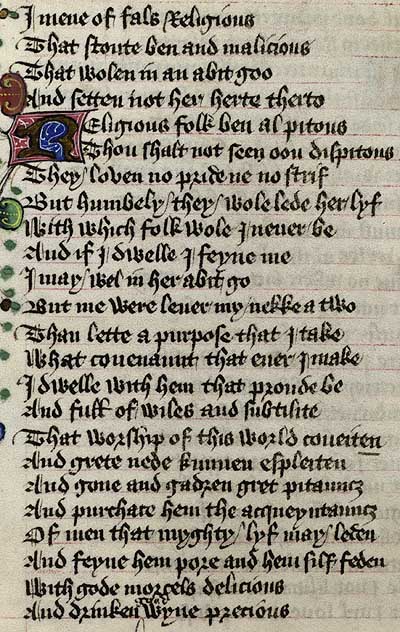 I mene of fals Religious
That stoute ben and malicious
That wolen in an abit goo
And setten not her herte therto
Religious folk ben al pitous
Thou shalt not seen oon dispitous
They loven no pride ne no strif
But humbely they wole lede her lyf
With which folk wole I never be
And if I dwelle I feyne me
I may wel in her abit go
But me were lever my nekke a two
Than lette a purpose that I take
What covenaunt that ever I make
I dwelle with hem that proude be
And full of wiles and subtilite
That worship of this world coveiten
And grete nede kunnen espleiten
And gone and gadren gret pitaunces
And purchace hem the acqueyntaunces
Of men that myghty lyf may leden
And feyne hem pore and hem silf feden
With gode morcels delicious
And drinken good wyne precious